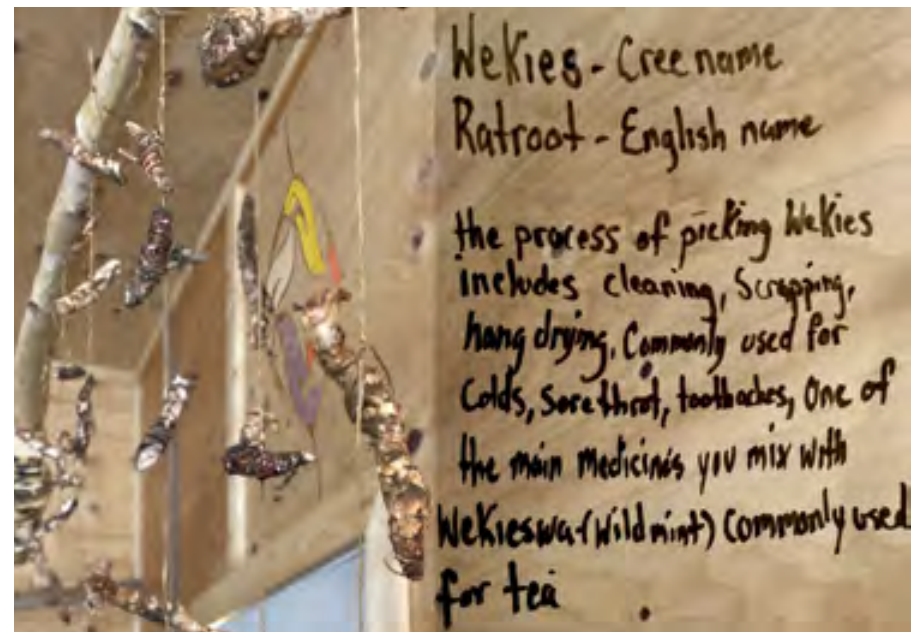 Wekies - Cree name
Ratroot - English name
the process of picking Wekies
includes cleaning, Scrapping,
hang drying, Commonly used for
Colds, Sore throt, toothaches, One of
the main Medicines you mix with
Wekieswa (Wild mint) Commonly used
for tea